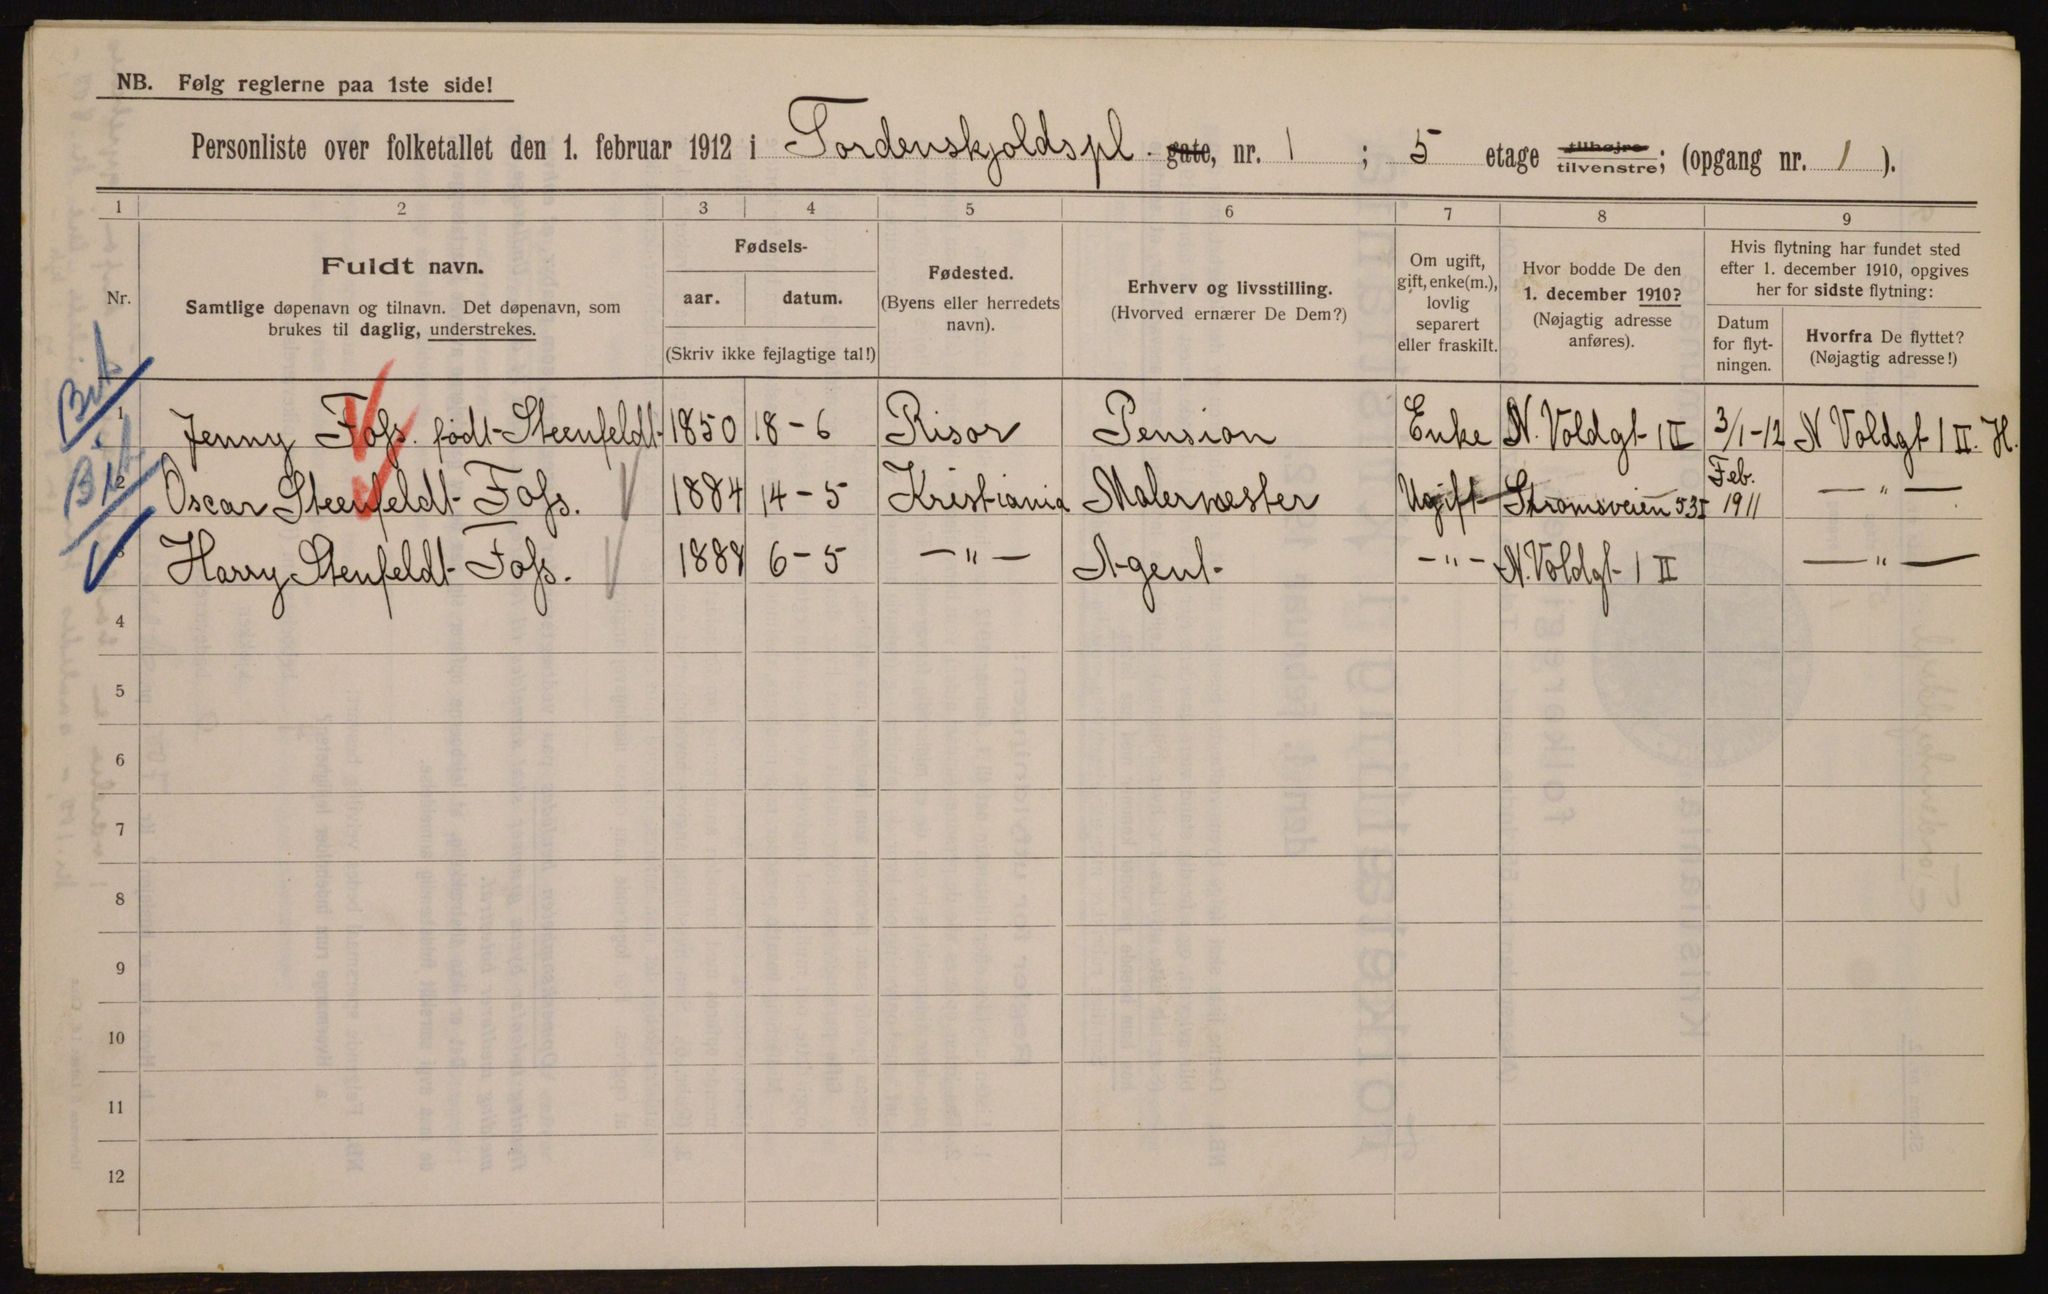 NB. Følg reglerne paa 1ste side!
Personliste over folketallet den 1. februar 1912 i Tordenskjoldspl. gate, nr. 1 ; 5 etage tilhøjre/tilvenstre; (opgang nr. 1 ).
1 2 3 4 5 6 7 8 9
Nr.
Fuldt navn.
Samtlige døpenavn og tilnavn. Det døpenavn, som
brukes til daglig, understrekes.
Fødsels-
aar. datum.
(Skriv ikke fejlagtige tal!)
Fødested.
(Byens eller herredets
navn).
Erhverv og livsstilling.
(Hvorved ernærer De Dem?)
Om ugift,
gift, enke(m.),
lovlig
separert
eller fraskilt.
Hvor bodde De den
1. december 1910?
(Nøjagtig adresse
anføres).
Hvis flytning har fundet sted
efter 1. december 1910, opgives
her for sidste flytning:
Datum
for flyt-
ningen.
Hvorfra De flyttet?
(Nøjagtig adresse!)
1 Jenny Foss. født Steenfeldt 1850 18-6 Risør Pension Enke N. Voldgt 1 II 3/1-12 N Voldgt 1 II. H.
2 Oscar Steenfeldt Foss. 1884 14-5 Kristiania Malermester Ugift Strømsveien 53 I Feb. 1911 — " —
3 Harry Stenfeldt Foss. 1888 6-5 — " — Agent - " - N. Voldgt 1 II — " —
4
5
6
7
8
9
10
11
12